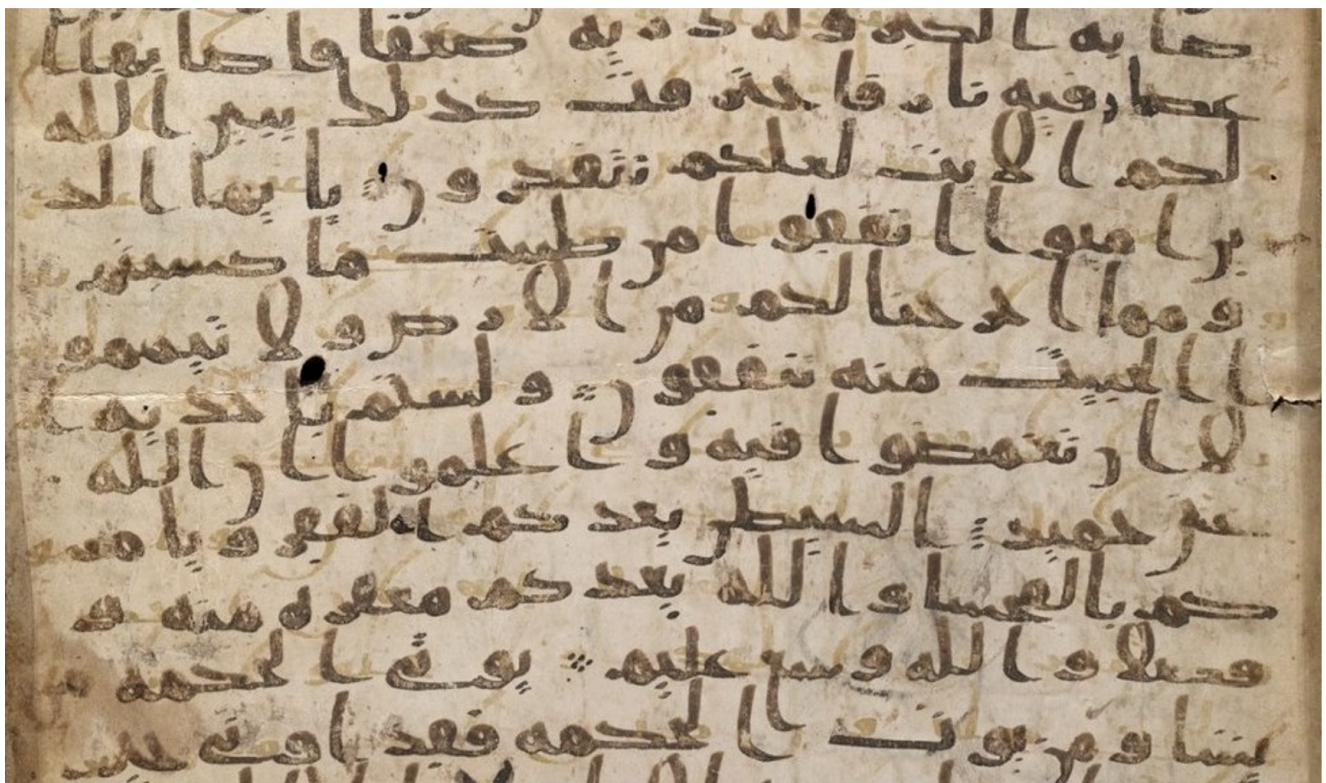 صابه الكبر وله ذرية ضعفا فاصابها ا
عصار فيه نار فاحترقت كذلك يبين الله
لكم الايت لعلكم تتفكرون يايها الذ
ين امنوا انفقوا من طيبت ما كسبتم
ومما اخرجنا لكم من الارض ولا تيممو
ا الخبيث منه تنفقون ولستم باخذيه ا
لا ان تغمضوا فيه واعلموا ان الله
غني حميد الشيطن يعدكم الفقر ويامر
كم بالفحشا والله يعدكم مغفرة منه و
فضلا والله وسع عليم يوتي الحكمة من
يشا ومن يوت الحكمة فقد اوتي خير